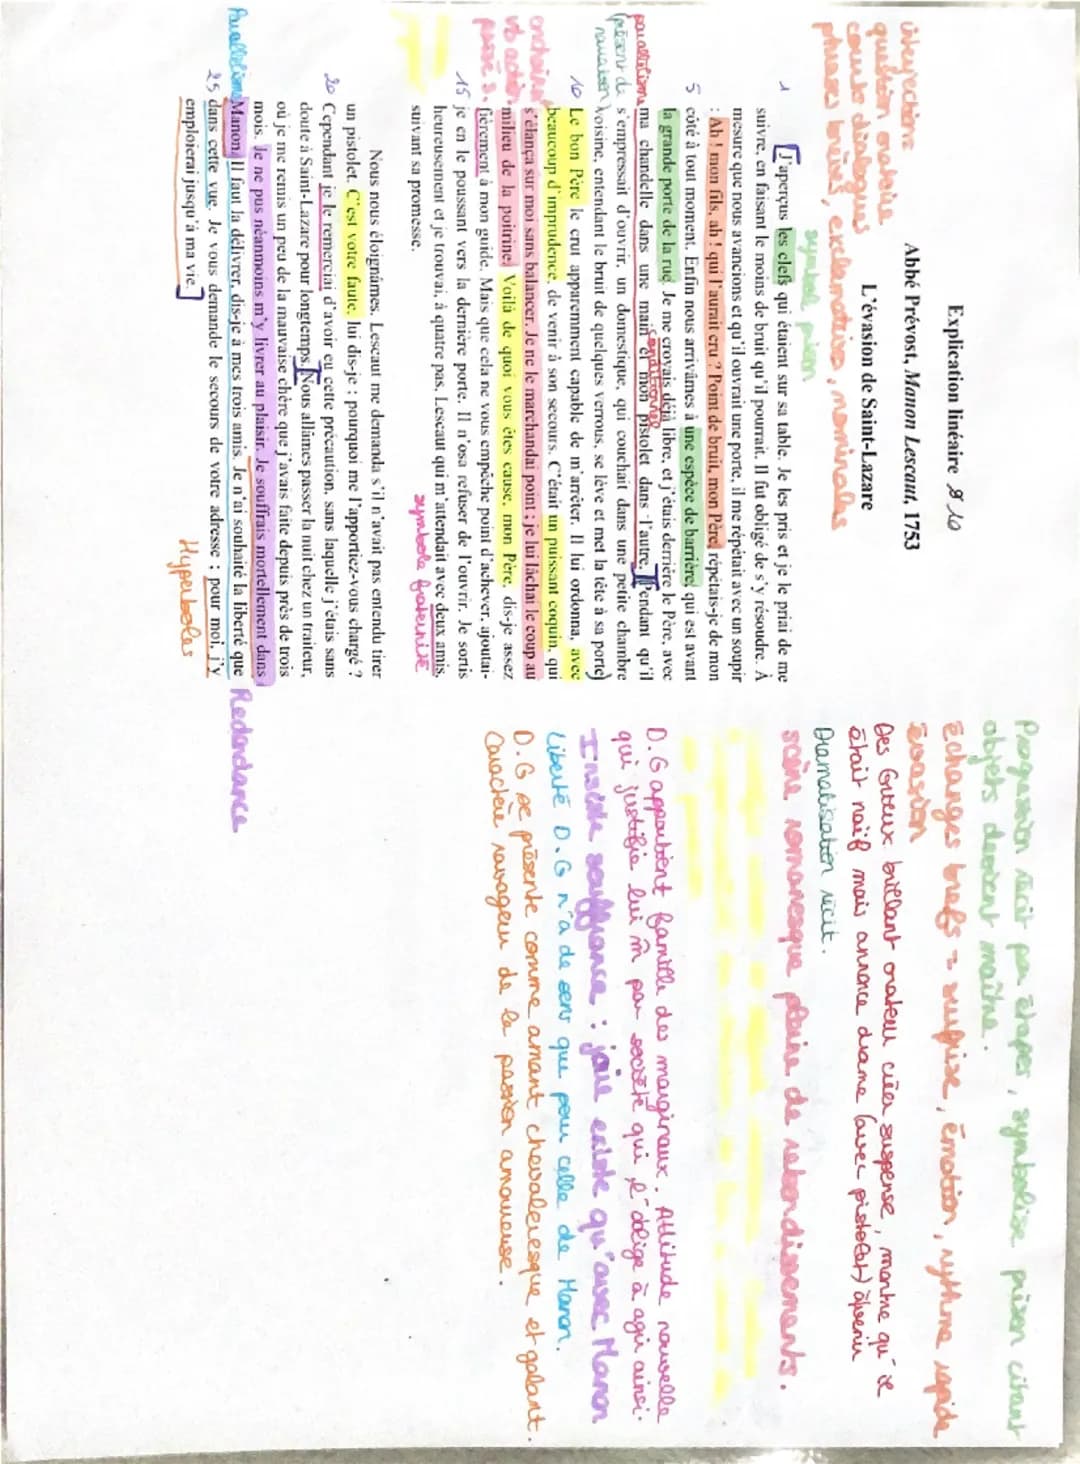 Explication linéaire n°10
Abbé Prévost, Manon Lescaut, 1753
L'évasion de Saint-Lazare
interjections
question oratoire
courts dialogues
phrases brèves, exclamatives, nominales
symbole prison
1 [J'aperçus les clefs qui étaient sur sa table. Je les pris et je le priai de me
suivre, en faisant le moins de bruit qu'il pourrait. Il fut obligé de s'y résoudre. À
mesure que nous avancions et qu'il ouvrait une porte, il me répétait avec un soupir
: Ah ! mon fils, ah ! qui l'aurait cru ? Point de bruit, mon Père, répétais-je de mon
5 côté à tout moment. Enfin nous arrivâmes à une espèce de barrière, qui est avant
la grande porte de la rue. Je me croyais déjà libre, et j'étais derrière le Père, avec
conditionnel
parallélisme ma chandelle dans une main et mon pistolet dans l'autre.] [Pendant qu'il
(présent de s'empressait d'ouvrir, un domestique, qui couchait dans une petite chambre
narration) voisine, entendant le bruit de quelques verrous, se lève et met la tête à sa porte)
10 Le bon Père le crut apparemment capable de m'arrêter. Il lui ordonna, avec
beaucoup d'imprudence, de venir à son secours. C'était un puissant coquin, qui
s'élança sur moi sans balancer. Je ne le marchandai point ; je lui lâchai le coup au
vb action milieu de la poitrine. Voilà de quoi vous êtes cause, mon Père, dis-je assez
passé s. fièrement à mon guide. Mais que cela ne vous empêche point d'achever, ajoutai-
15 je en le poussant vers la dernière porte. Il n'osa refuser de l'ouvrir. Je sortis
heureusement et je trouvai, à quatre pas, Lescaut qui m'attendait avec deux amis,
suivant sa promesse.
symbole fraternité
Nous nous éloignâmes. Lescaut me demanda s'il n'avait pas entendu tirer
un pistolet. C'est votre faute, lui dis-je ; pourquoi me l'apportiez-vous chargé ?
20 Cependant je le remerciai d'avoir eu cette précaution, sans laquelle j'étais sans
doute à Saint-Lazare pour longtemps.] [Nous allâmes passer la nuit chez un traiteur,
où je me remis un peu de la mauvaise chère que j'avais faite depuis près de trois
mois. Je ne pus néanmoins m'y livrer au plaisir. Je souffrais mortellement dans
Redondance
Parallélisme Manon. Il faut la délivrer, dis-je à mes trois amis. Je n'ai souhaité la liberté que
25 dans cette vue. Je vous demande le secours de votre adresse ; pour moi, j'y
emploierai jusqu'à ma vie.]
Hyperboles
Progession récit par étapes, symbolise prison citant
objets devient maître.
Echanges brefs = surprise, émotion, rythme rapide
évasion
Des Grieux brillant orateur créer suspense, montre qu'il
était naïf mais annonce drame (avec pistolet) àvenir
Dramatisation récit.
scène romanesque pleine de rebondissements.
D.G appartient famille des marginaux. Attitude nouvelle
qui justifie lui m̂ par société qui l'oblige à agir ainsi.
Insiste souffrance : joie existe qu'avec Manon
Liberté D.G n'a de sens que pour celle de Manon.
D.G se présente comme amant chevaleresque et galant.
Caractère ravageur de la passion amoureuse.